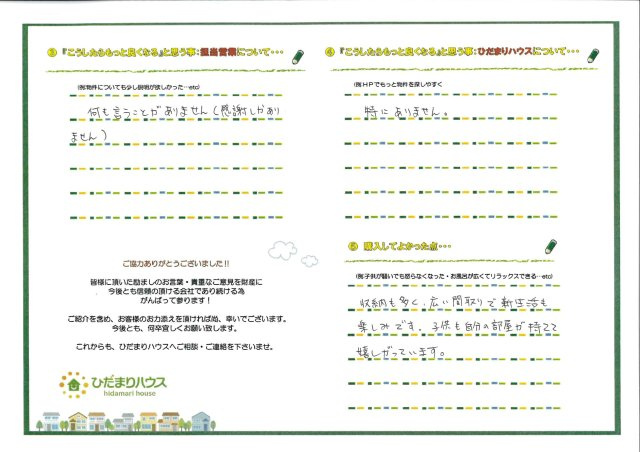 ③『こうしたらもっと良くなる』と思う事:担当営業について・・・
(例:物件についても少し説明が欲しかった…etc)
何も言うことがありません(感謝しかあり
ません)
ご協力ありがとうございました!!
皆様に頂いた励ましのお言葉・貴重なご意見を財産に
今後とも信頼の頂ける会社であり続ける為
がんばって参ります!
ご紹介を含め、お客様のお力添えを頂ければ尚、幸いでございます。
今後とも、何卒宜しくお願い致します。
これからも、ひだまりハウスへご相談・ご連絡を下さいませ。
ひだまりハウス
hidamari house
④『こうしたらもっと良くなる』と思う事:ひだまりハウスについて・・・
(例:HPでもっと物件を探しやすく
特にありません。
⑤ 購入してよかった点…
(例:子供が騒いでも怒らなくなった・お風呂が広くてリラックスできる…etc)
収納も多く、広い間取りで新生活も
楽しみです。子供も自分の部屋が持てて
嬉しがっています。